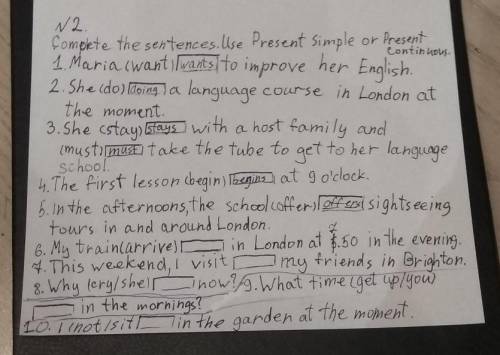 N2.
Complete the sentences. Use Present Simple or Present
Continuous.
1. Maria (want) wants to improve her English.
2. She (do) doing a language course in London at
the moment.
3. She (stay) stays with a host family and
(must) must take the tube to get to her language
school.
4. The first lesson (begin) begins at 9 o'clock.
5. In the afternoons, the school (offer) offers sightseeing
tours in and around London.
6. My train (arrive) in London at 7.50 in the evening.
7. This weekend, I visit my friends in Brighton.
8. Why (cry/she) now? 9. What time (get up/you)
in the mornings?
10. I (not/sit in the garden at the moment.